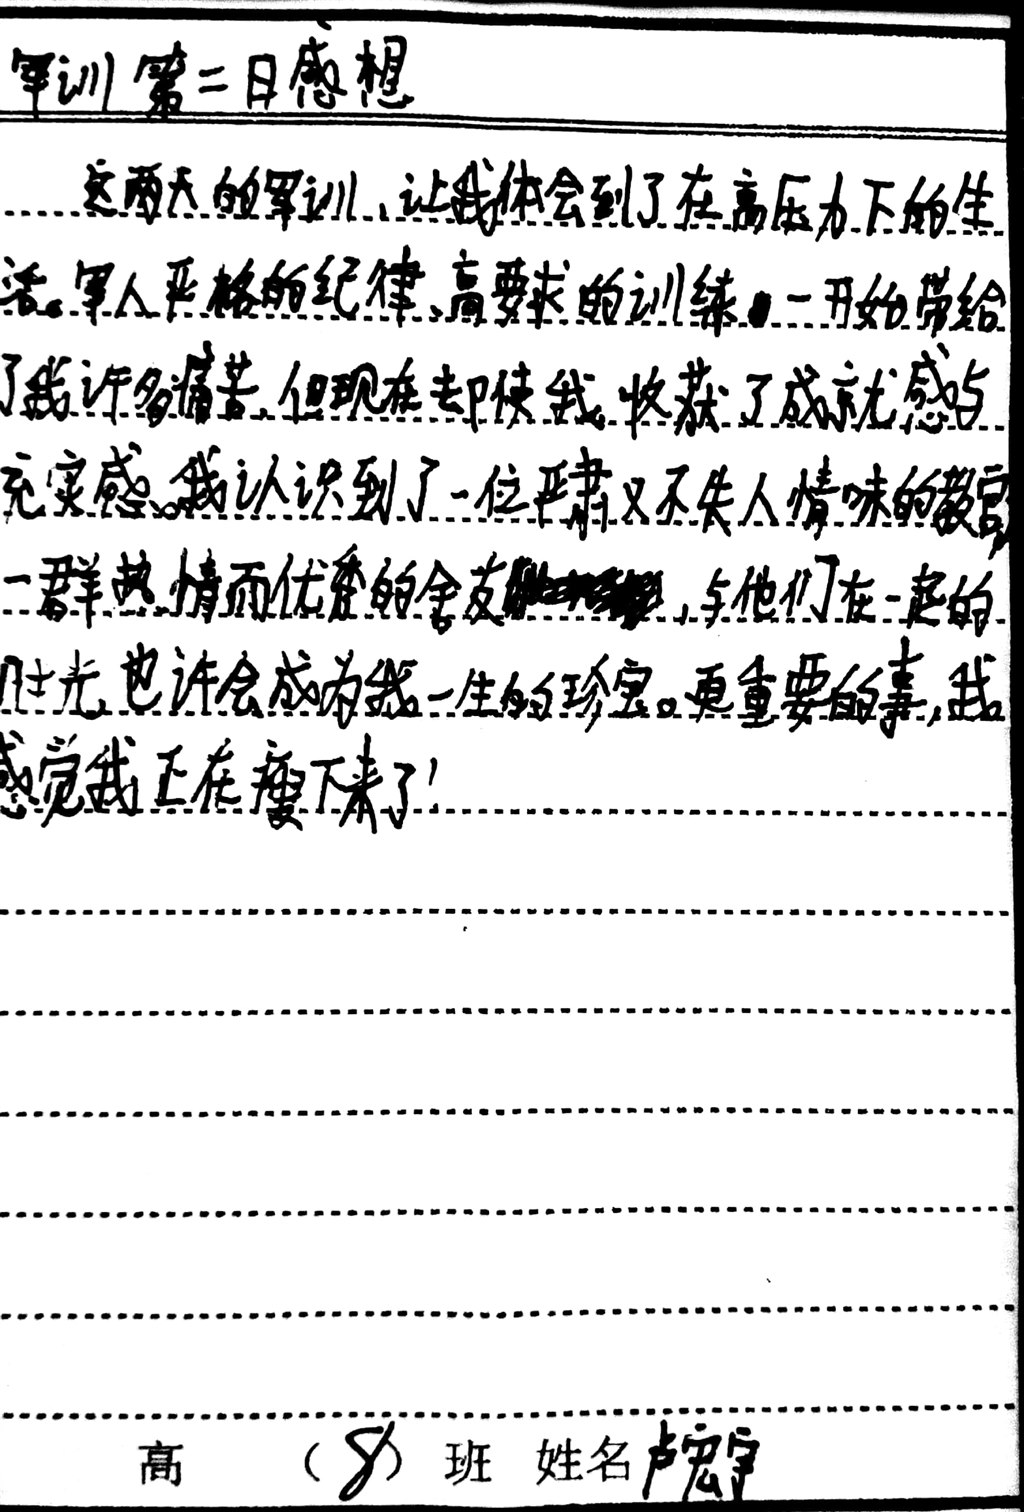 军训第二日感想
这两天的军训,让我体会到了在高压力下的生
活。军人严格的纪律、高要求的训练。一开始带给
了我许多痛苦,但现在却使我收获了成就感与
充实感。我认识到了一位严肃又不失人情味的教官,
一群热情而优秀的舍友,与他们在一起的
时光,也许会成为我一生的珍宝。更重要的事,我
感觉我正在瘦下来了!
高 (8) 班 姓名卢宏宇